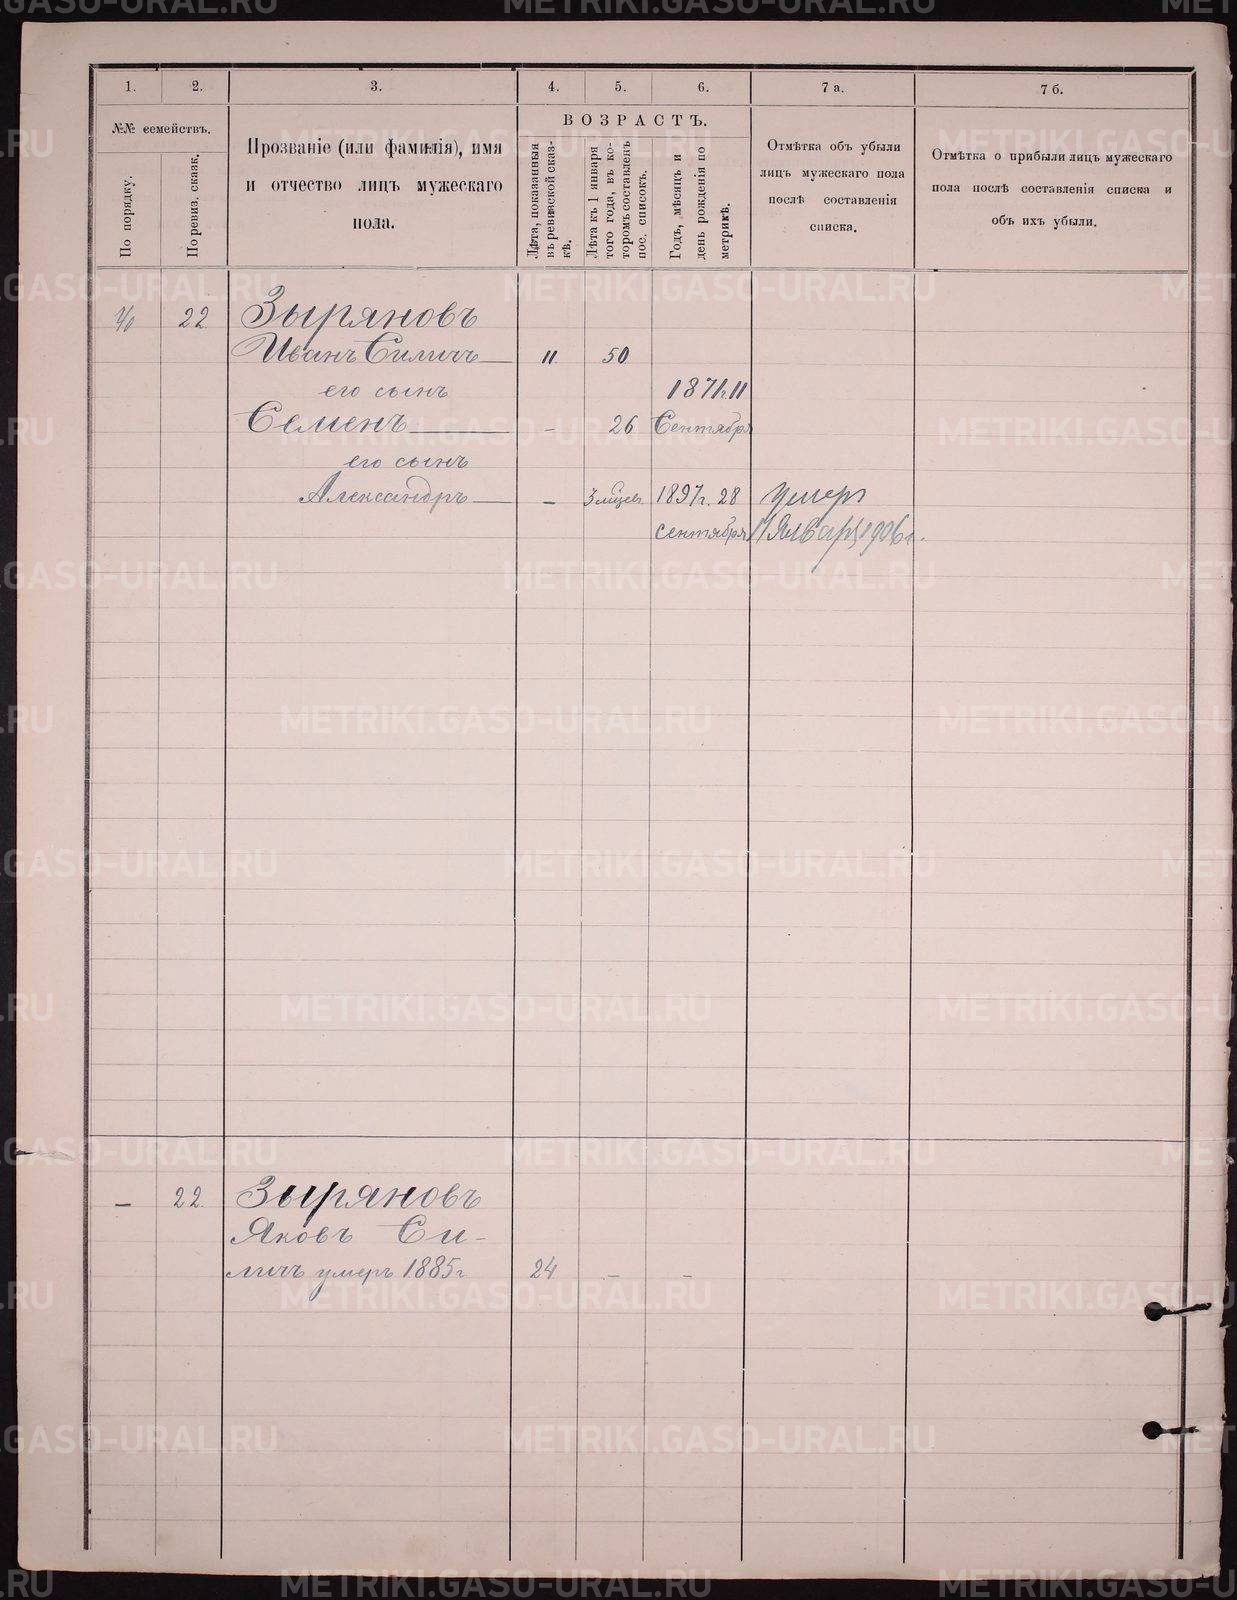 1. 2. 3. 4. 5. 6. 7 а. 7 б.
№№ семействъ.
По порядку.
По ревиз. сказк.
Прозваніе (или фамилія), имя
и отчество лицъ мужескаго
пола.
ВОЗРАСТЪ.
Лѣта, показанныя
въ ревизской сказ-
кѣ.
Лѣта къ 1 января
того года, въ ко-
торомъ составленъ
пос. списокъ.
Годъ, мѣсяцъ и
день рожденія по
метрикѣ.
Отмѣтка объ убыли
лицъ мужескаго пола
послѣ составленія
списка.
Отмѣтка о прибыли лицъ мужескаго
пола послѣ составленія списка и
объ ихъ убыли.
22 Зыряновъ
Иванъ Силичъ 11 50
его сынъ 1871г. 11
Семенъ - 26 Сентября
его сынъ
Александръ - 3 1897г. 28 умеръ
сентября 11 Января 1906г.
- 22 Зыряновъ
Яковъ Си-
личъ умеръ 1885г. 24 - -
METRIKI.GASO-URAL.RU